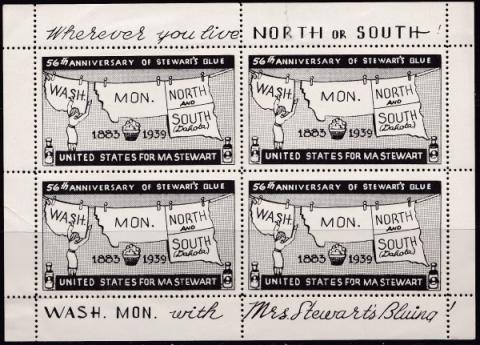 Wherever you live NORTH OR SOUTH!
56th ANNIVERSARY OF STEWART'S BLUE
WASH.
MON.
NORTH
AND
SOUTH
(Dakota)
1883 1939
UNITED STATES FOR MA STEWART
56th ANNIVERSARY OF STEWART'S BLUE
WASH.
MON.
NORTH
AND
SOUTH
(Dakota)
1883 1939
UNITED STATES FOR MA STEWART
56th ANNIVERSARY OF STEWART'S BLUE
WASH.
MON.
NORTH
AND
SOUTH
(Dakota)
1883 1939
UNITED STATES FOR MA STEWART
56th ANNIVERSARY OF STEWART'S BLUE
WASH.
MON.
NORTH
AND
SOUTH
(Dakota)
1883 1939
UNITED STATES FOR MA STEWART
WASH. MON. with Mrs. Stewart's Bluing!